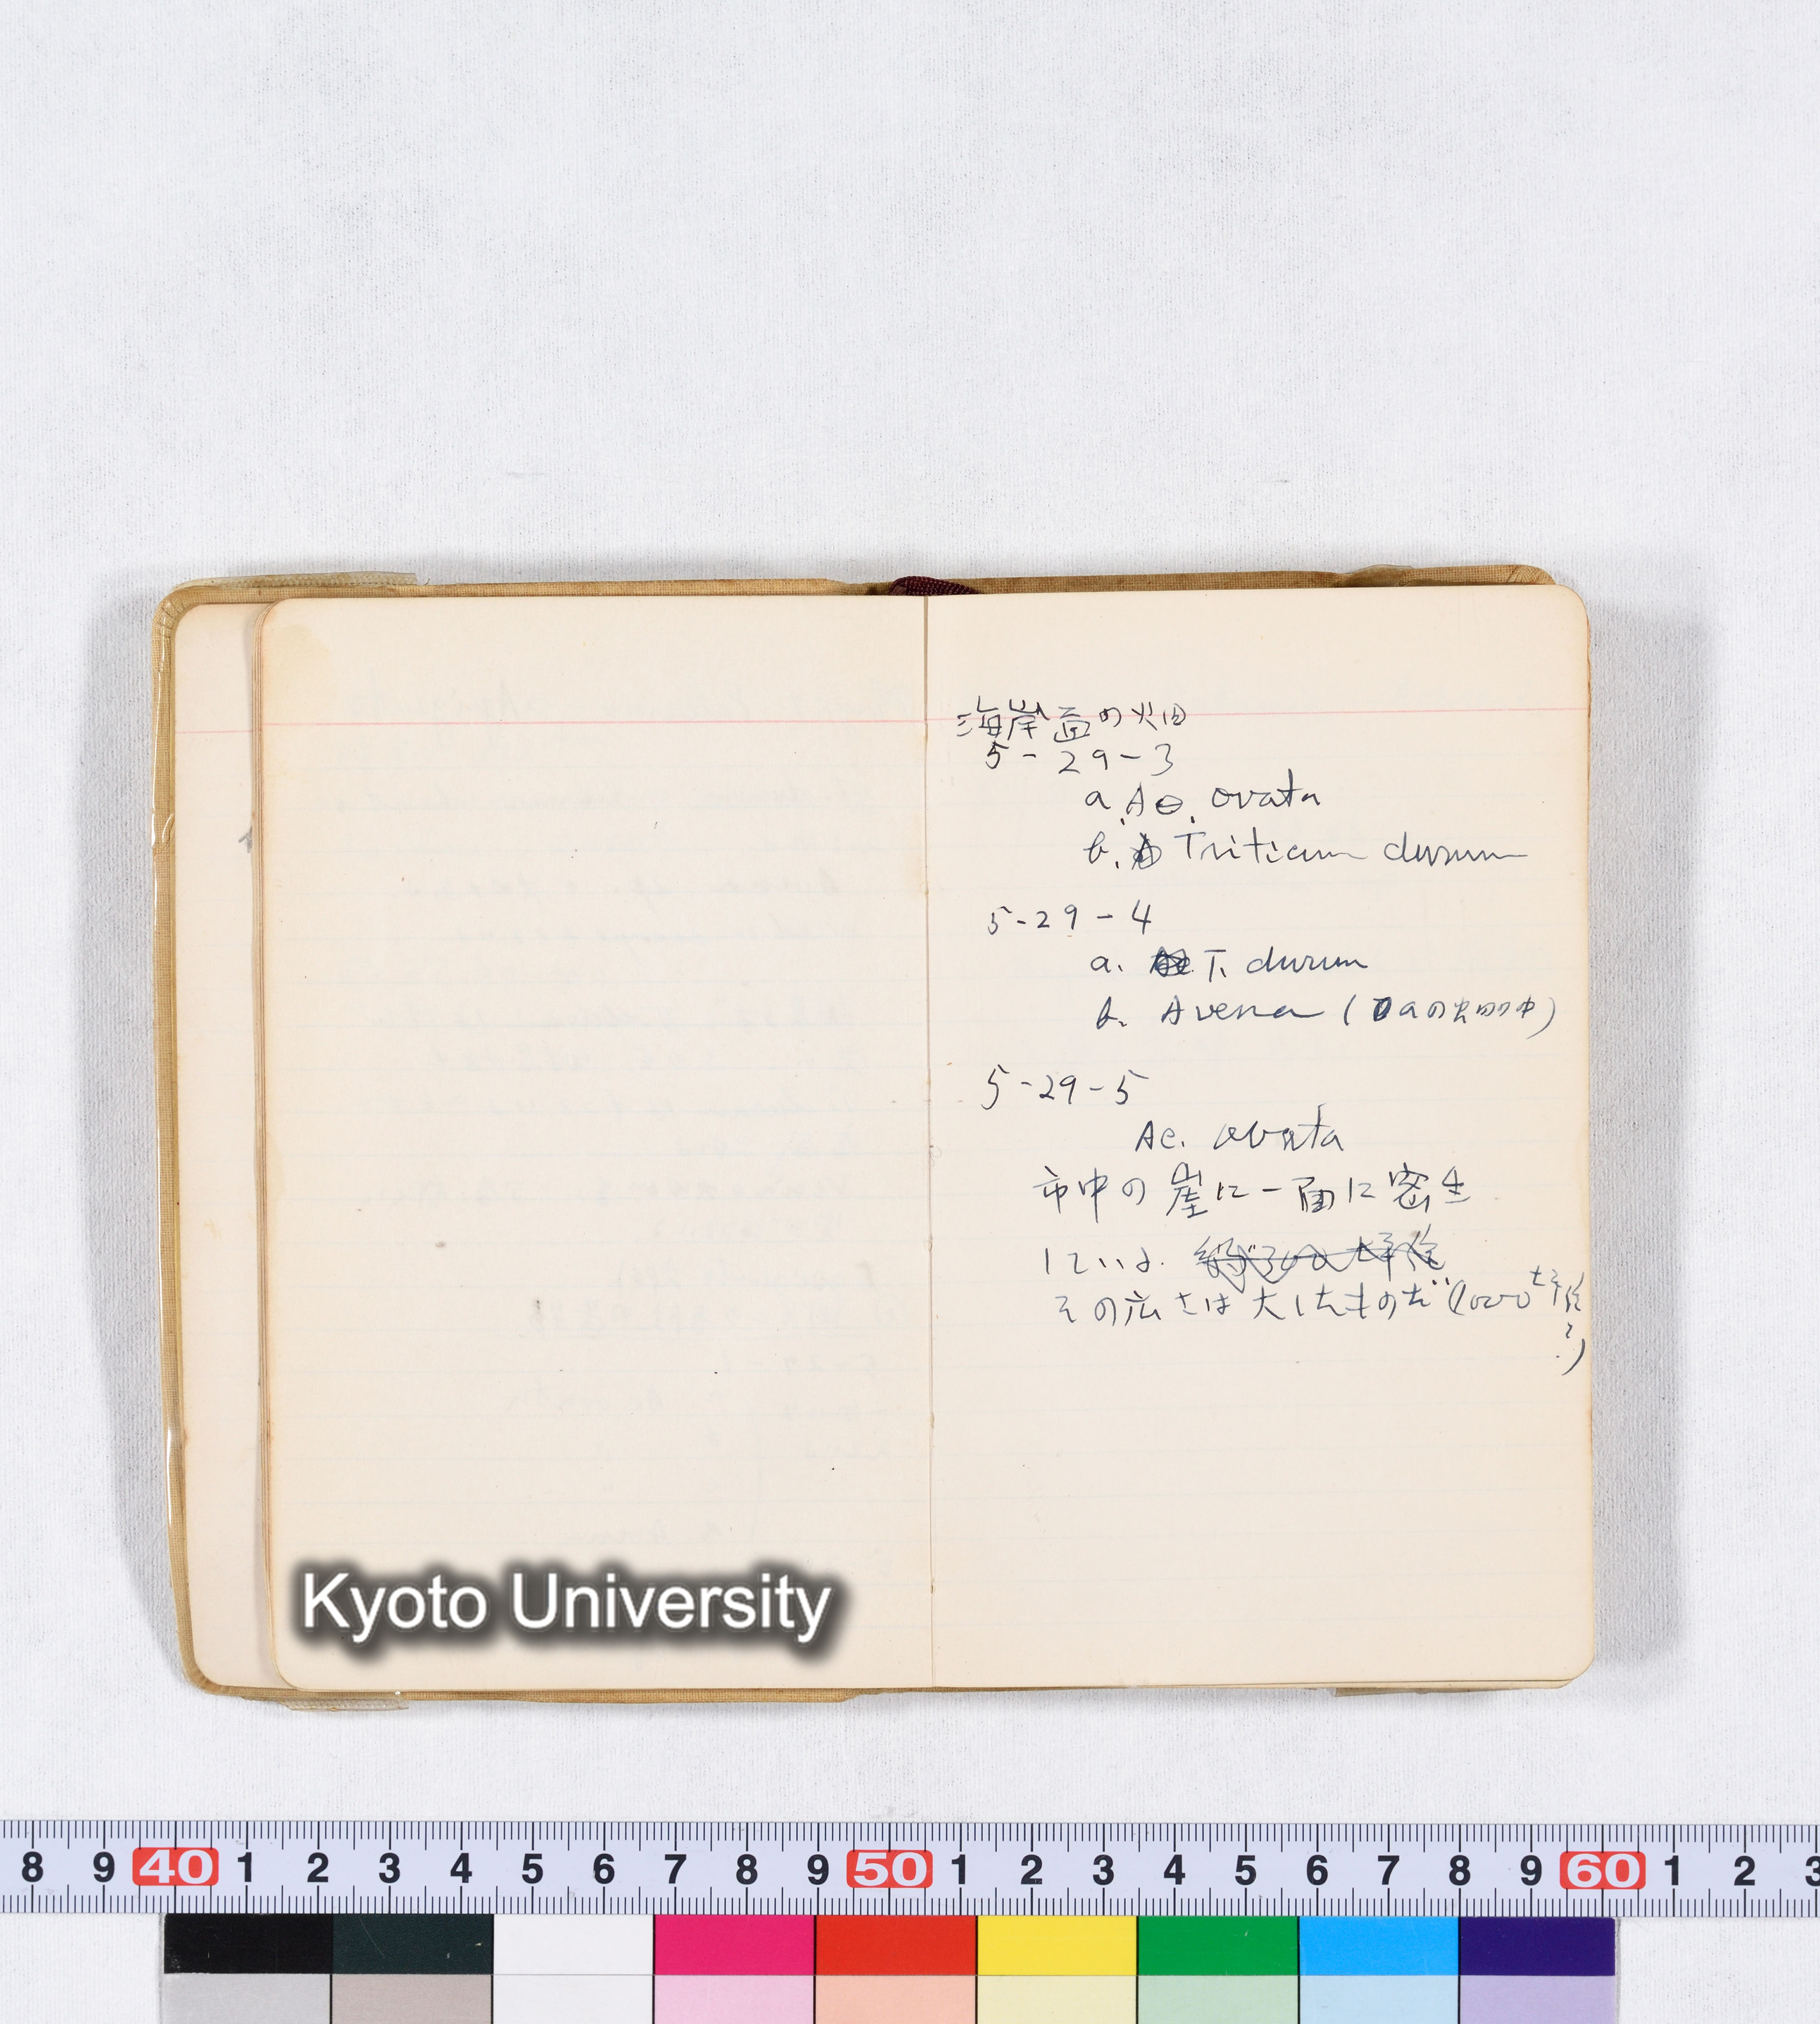 海岸畄の畑
5-29-3
a. Ae. ovata
b. Triticum durum
5-29-4
a. T. durum
b. Avena (aの畑の中)
5-29-5
Ae. ovata
市中の崖に一面に密生
している.
その広さは大したものだ(1000
?)
Kyoto University
8 9 40 1 2 3 4 5 6 7 8 9 50 1 2 3 4 5 6 7 8 9 60 1 2 3